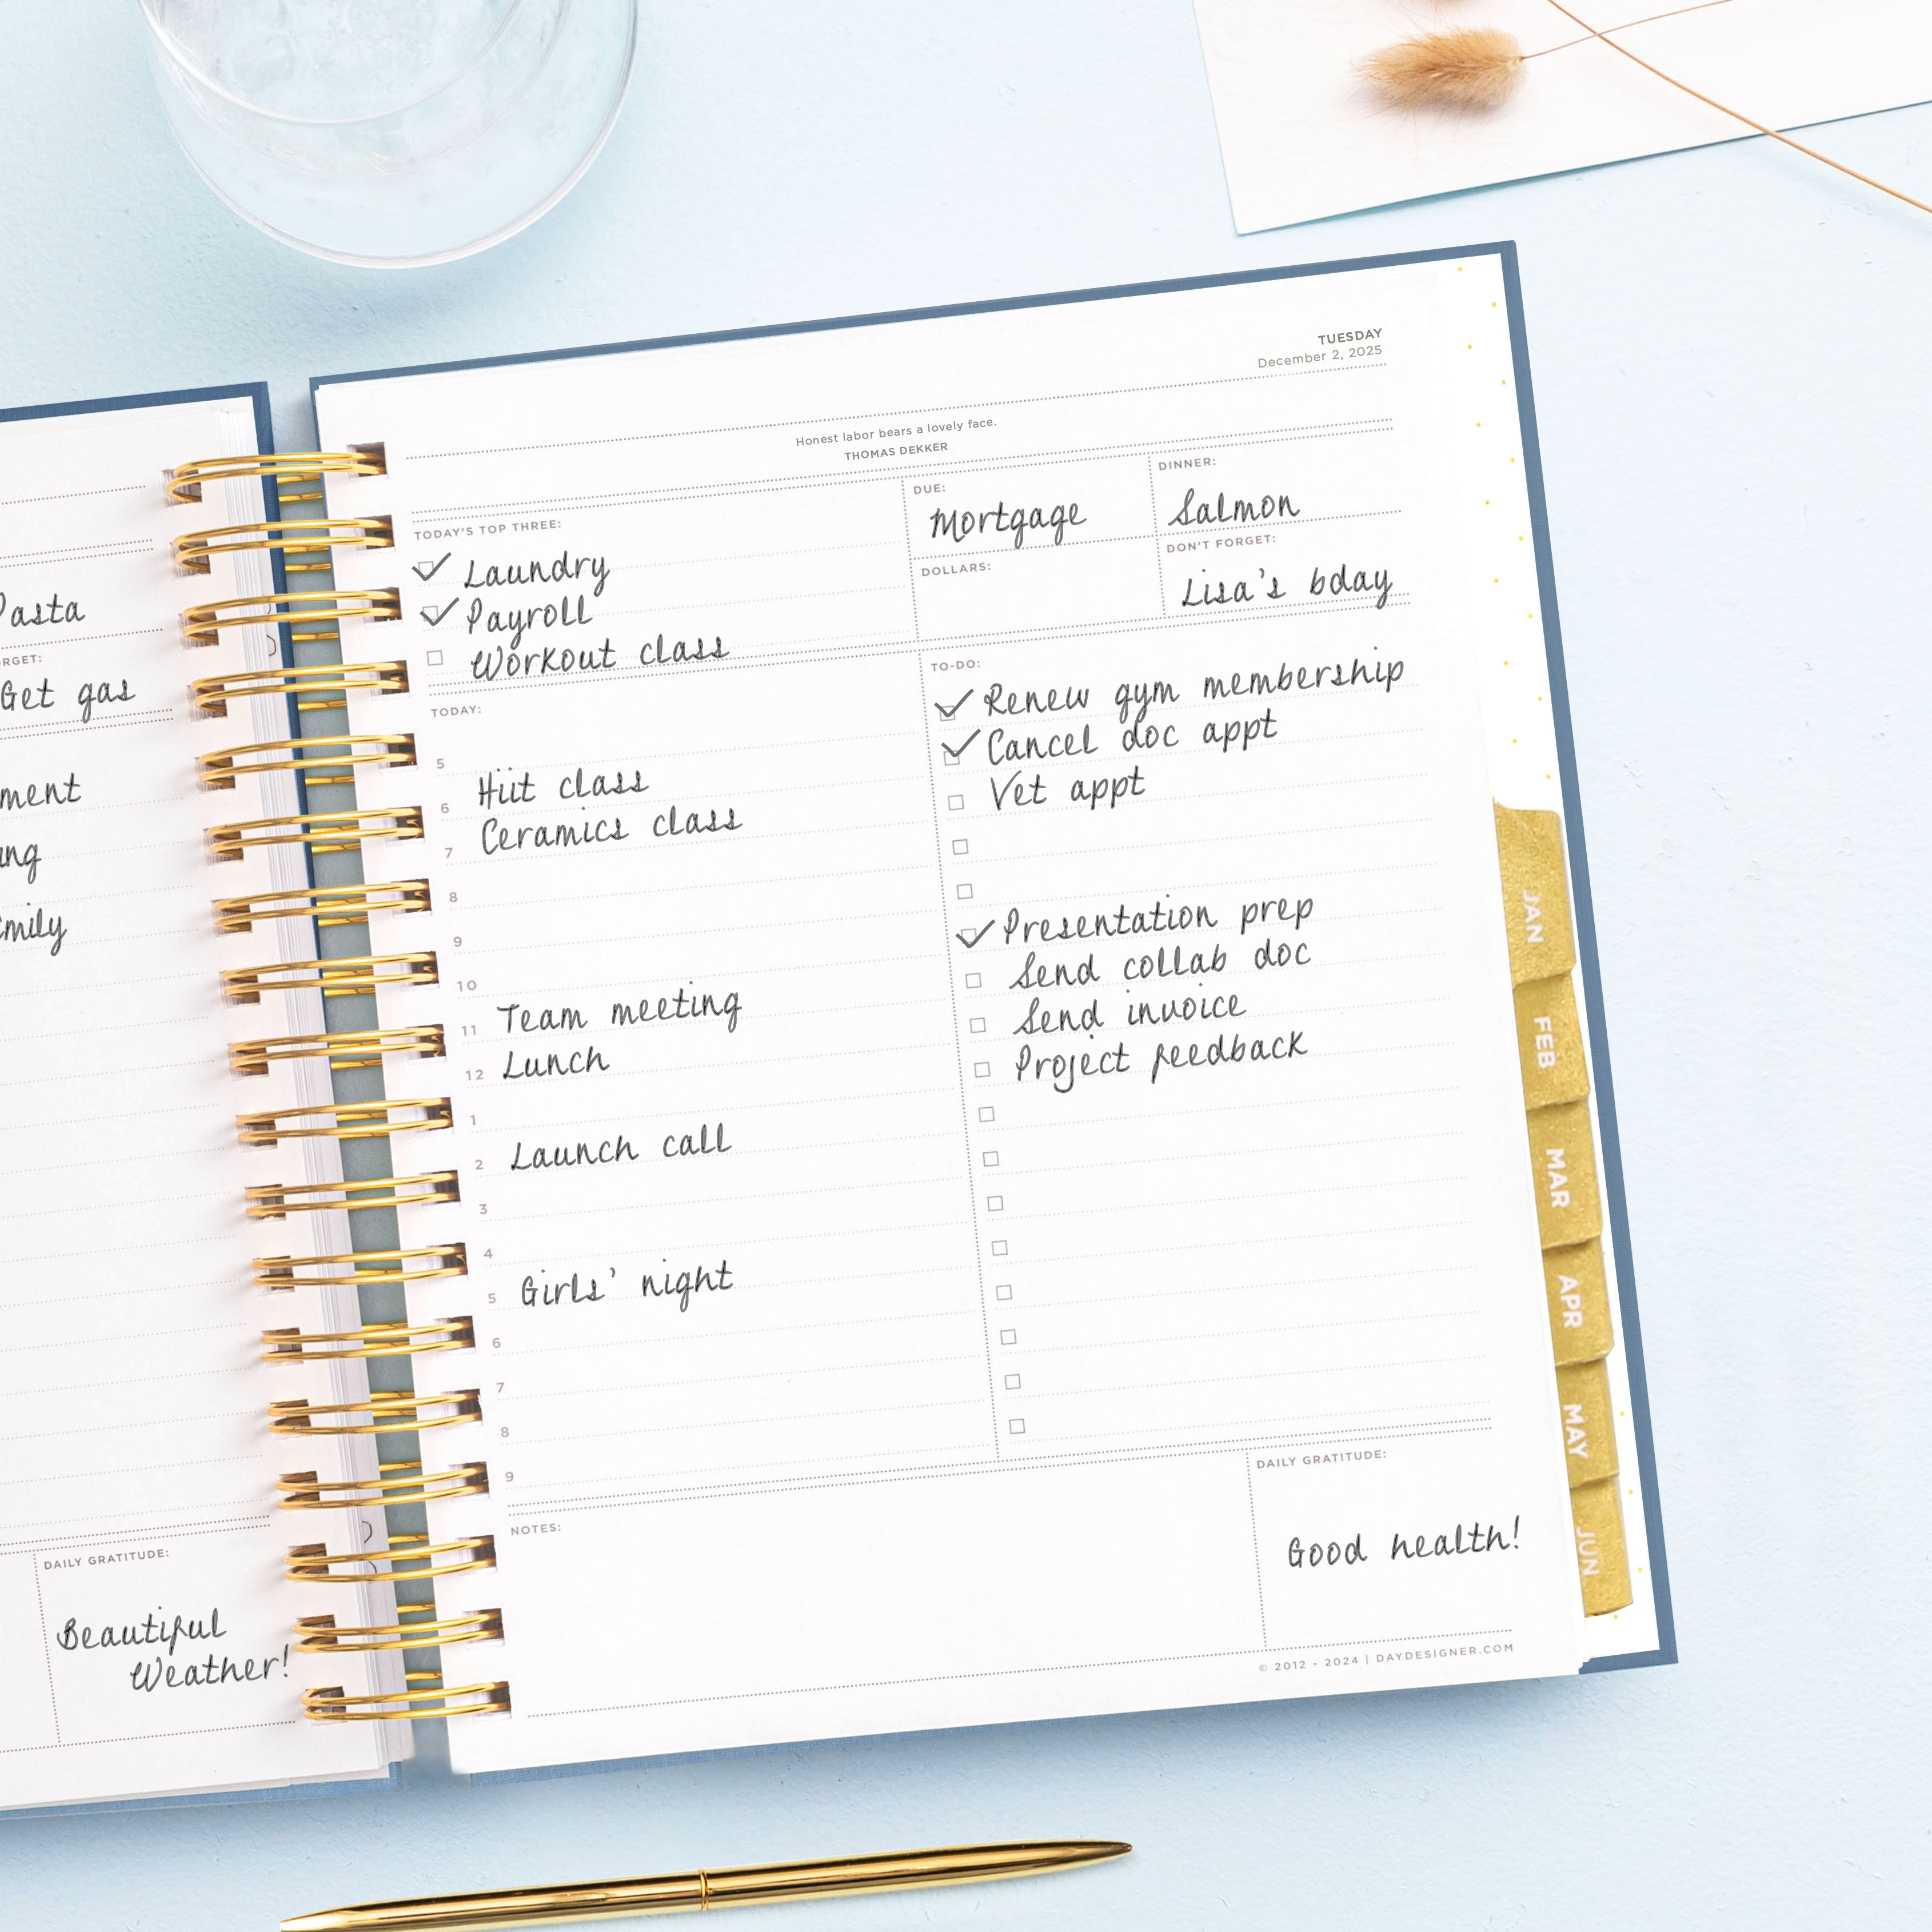 Get gas
DAILY GRATITUDE:
Beautiful
Weather!
TUESDAY
December 2, 2025
Honest labor bears a lovely face.
THOMAS DEKKER
TODAY'S TOP THREE:
Laundry
Payroll
Workout class
DUE:
Mortgage
DOLLARS:
DINNER:
Salmon
DON'T FORGET:
Lisa's bday
TODAY:
5
6 Hiit class
7 Ceramics class
8
9
10
11 Team meeting
12 Lunch
1
2 Launch call
3
4
5 Girls' night
6
7
8
9
TO-DO:
Renew gym membership
Cancel doc appt
Vet appt
Presentation prep
Send collab doc
Send invoice
Project feedback
NOTES:
DAILY GRATITUDE:
Good health!
© 2012 - 2024 | DAYDESIGNER.COM
JAN
FEB
MAR
APR
MAY
JUN